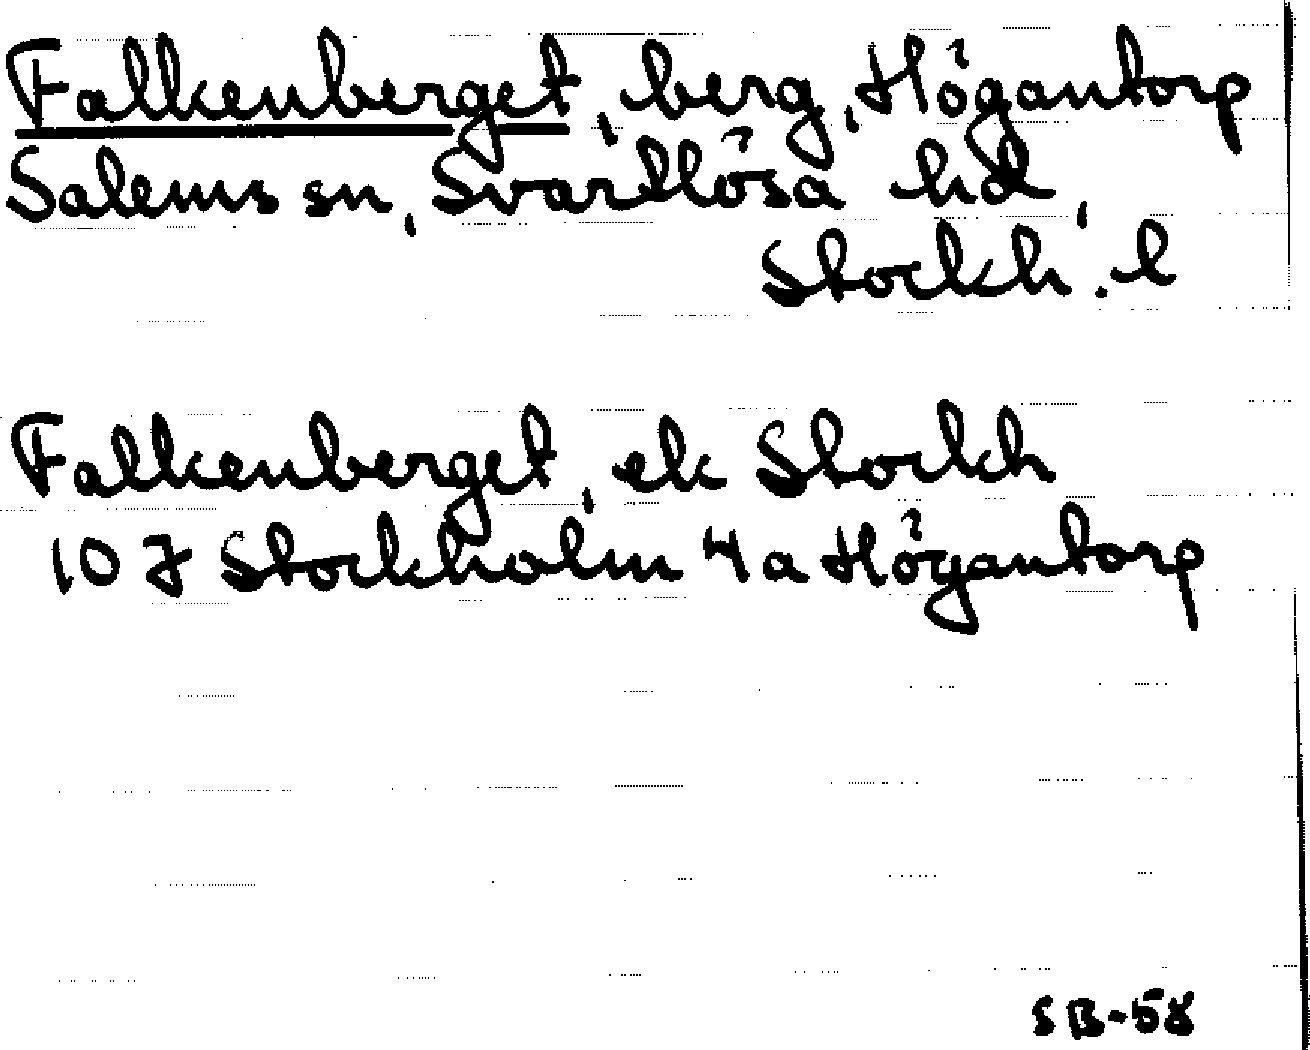 Falkenberget, berg, Högantorp
Salems sn, Svartlösa hd,
Stockh. l
Falkenberget, ek Stockh
10 J Stockholm 4a Högantorp
SB-58